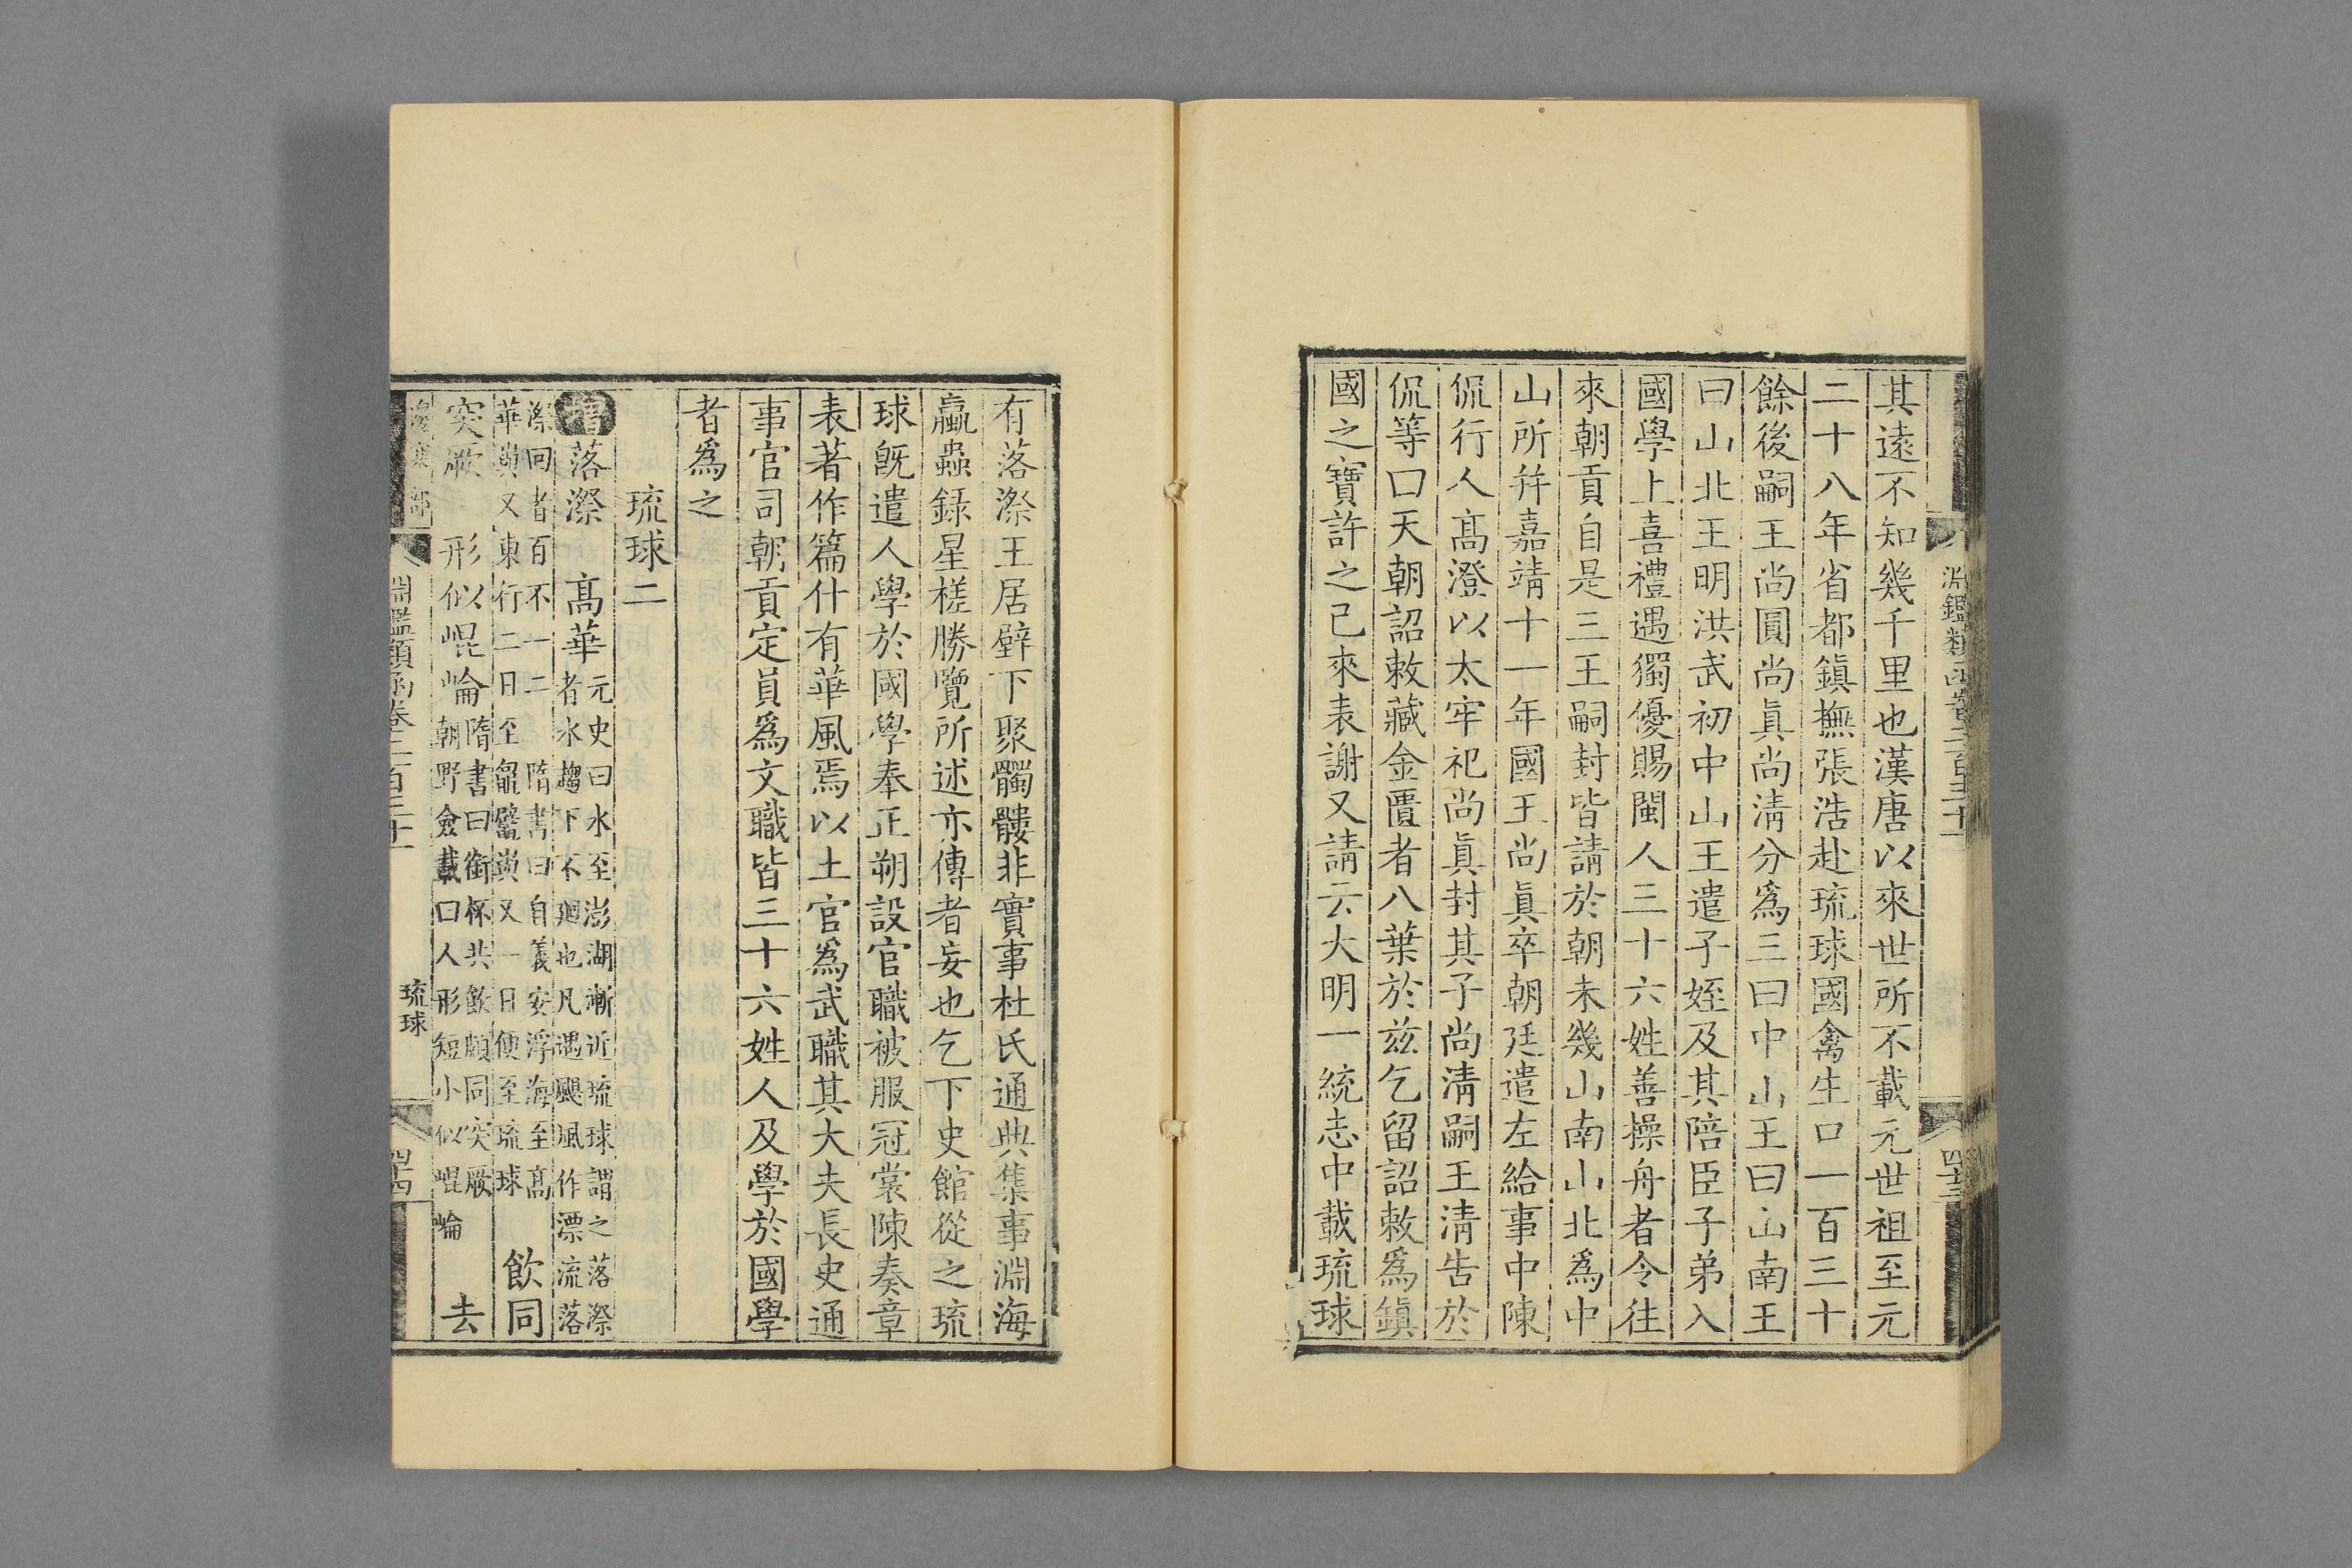 淵鑑類函卷二百三十
四十三
其遠不知幾千里也漢唐以來世所不載元世祖至元
二十八年省都鎮撫張浩赴琉球國禽生口一百三十
餘後嗣王尚圓尚眞尚淸分爲三曰中山王曰山南王
曰山北王明洪武初中山王遣子姪及其陪臣子弟入
國學上喜禮遇獨優賜閩人三十六姓善操舟者令往
來朝貢自是三王嗣封皆請於朝未幾山南山北爲中
山所并嘉靖十一年國王尚眞卒朝廷遣左給事中陳
侃行人髙澄以太牢祀尚眞封其子尚淸嗣王淸告於
侃等曰天朝詔敕藏金匱者八葉於兹乞留詔敕爲鎭
國之寶許之已來表謝又請云大明一統志中載琉球
有落漈王居壁下聚髑髏非實事杜氏通典集事淵海
臝蟲錄星槎勝覽所述亦傳者妄也乞下史館從之琉
球旣遣人學於國學奉正朔設官職被服冠裳陳奏章
表著作篇什有華風焉以土官爲武職其大夫長史通
事官司朝貢定員爲文職皆三十六姓人及學於國學
者爲之
琉球二
增落漈 髙華元史曰水至澎湖漸近琉球謂之落漈
者水趨下不廻也凡遇颶風作漂流落
漈回者百不一二 隋書曰自義安浮海至髙
華嶼又東行二日至𪓟鼊嶼又一日便至琉球 飮同
突厥 形似崐崘隋書曰銜杯共飮頗同突厥
朝野僉載曰人形短小似崐崘 去
邊塞部
淵鑑類函卷二百三十
琉球
四十四